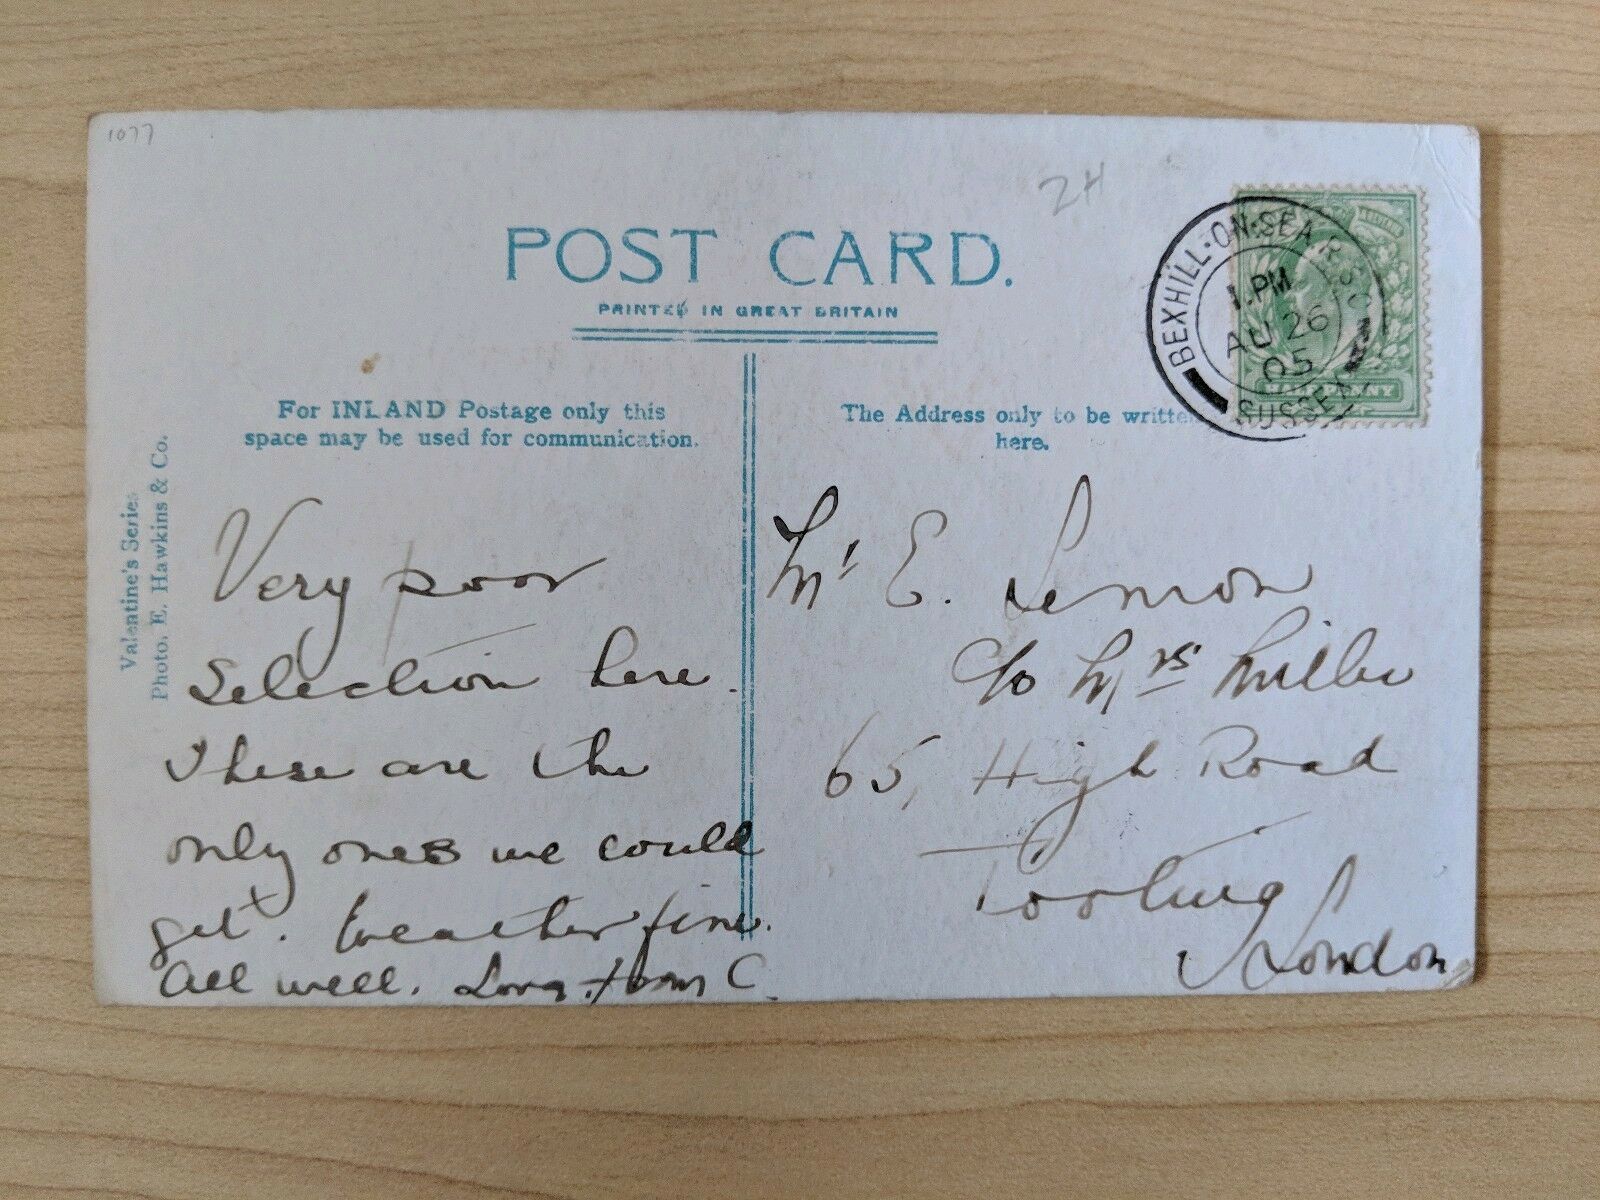 1077
2H
POST CARD.
PRINTED IN GREAT BRITAIN
BEXHILL·ON·SEA.R.S.O
1.PM
AU 26
05
SUSSEX
HALFPENNY
For INLAND Postage only this
space may be used for communication.
The Address only to be written
here.
Valentine's Series
Photo. E. Hawkins & Co.
Very poor
Selection here.
These are the
only ones we could
get. Weather fine.
All well. Love from C.
Mr E. Lemon
c/o Mrs Miller
65, High Road
Tooting
London